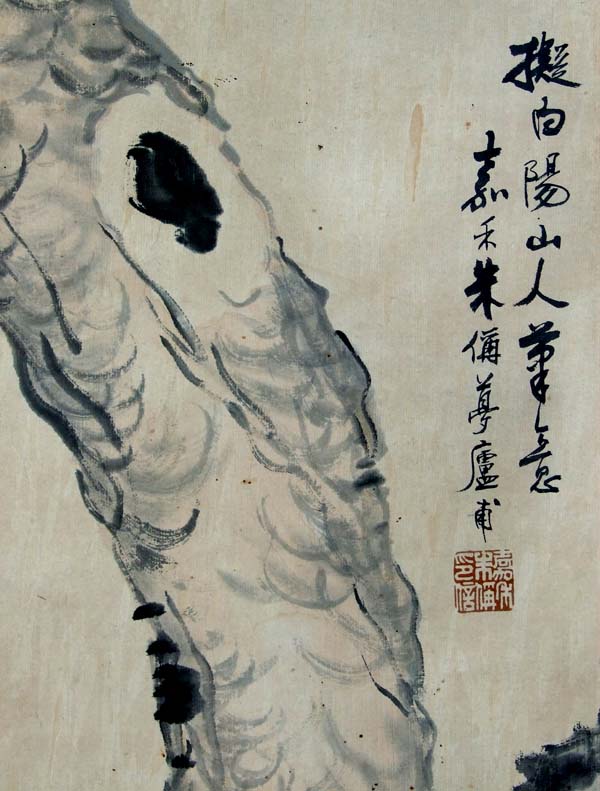 擬白陽山人筆意
嘉禾朱偁夢廬甫
嘉禾
朱偁
印信